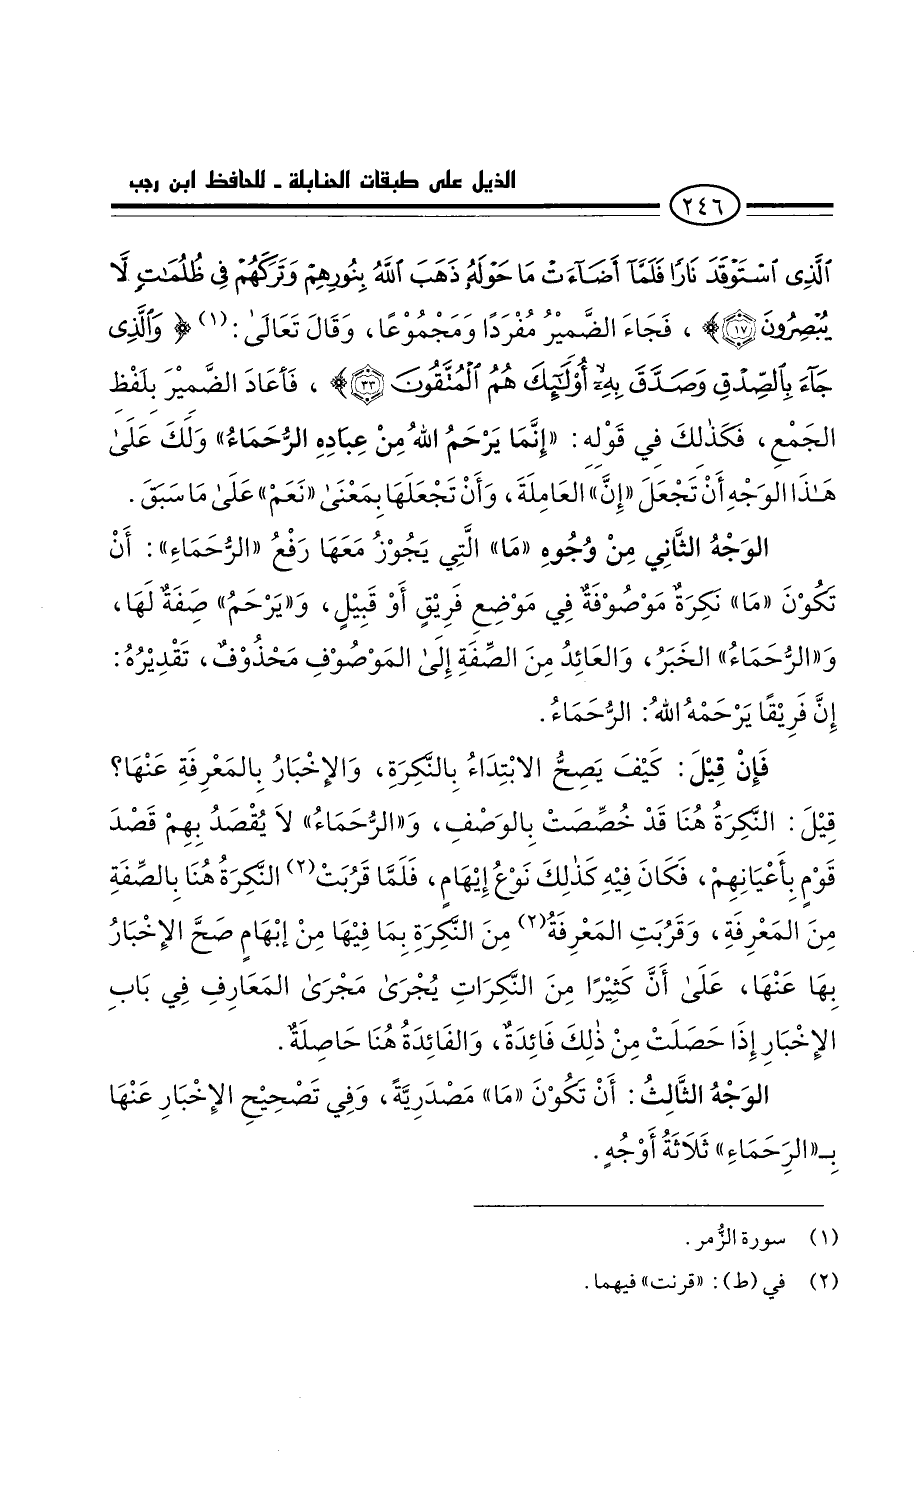 الذيل على طبقات الحنابلة - للحافظ ابن رجب
٢٤٦
ٱلَّذِى ٱسْتَوْقَدَ نَارًا فَلَمَّآ أَضَآءَتْ مَا حَوْلَهُۥ ذَهَبَ ٱللَّهُ بِنُورِهِمْ وَتَرَكَهُمْ فِى ظُلُمَٰتٍ لَّا
يُبْصِرُونَ ١٧﴾، فَجَاءَ الضَّمِيْرُ مُفْرَدًا وَمَجْمُوعًا، وَقَالَ تَعَالَىٰ: (١) ﴿وَٱلَّذِى
جَآءَ بِٱلصِّدْقِ وَصَدَّقَ بِهِۦٓ أُوْلَٰٓئِكَ هُمُ ٱلْمُتَّقُونَ ٣٣﴾، فَأَعَادَ الضَّمِيْرَ بِلَفْظِ
الجَمْعِ، فَكَذٰلِكَ فِي قَوْلِهِ: «إِنَّمَا يَرْحَمُ اللهُ مِنْ عِبَادِهِ الرُّحَمَاءُ» وَلَكَ عَلَىٰ
هَـٰذَا الوَجْهِ أَنْ تَجْعَلَ «إِنَّ» العَامِلَةَ، وَأَنْ تَجْعَلَهَا بِمَعْنَىٰ «نَعَمْ» عَلَىٰ مَا سَبَقَ.
الوَجْهُ الثَّانِي مِنْ وُجُوهِ «مَا» الَّتِي يَجُوْزُ مَعَهَا رَفْعُ «الرُّحَمَاءِ»: أَنْ
تَكُوْنَ «مَا» نَكِرَةً مَوْصُوْفَةً فِي مَوْضِعِ فَرِيْقٍ أَوْ قَبِيْلٍ، وَ«يَرْحَمُ» صِفَةٌ لَهَا،
وَ«الرُّحَمَاءُ» الخَبَرُ، وَالعَائِدُ مِنَ الصِّفَةِ إِلَىٰ المَوْصُوْفِ مَحْذُوْفٌ، تَقْدِيْرُهُ:
إِنَّ فَرِيْقًا يَرْحَمُهُ اللهُ: الرُّحَمَاءُ.
فَإِنْ قِيْلَ: كَيْفَ يَصِحُّ الابْتِدَاءُ بِالنَّكِرَةِ، وَالإِخْبَارُ بِالمَعْرِفَةِ عَنْهَا؟
قِيْلَ: النَّكِرَةُ هُنَا قَدْ خُصِّصَتْ بِالوَصْفِ، وَ«الرُّحَمَاءُ» لاَ يُقْصَدُ بِهِمْ قَصْدَ
قَوْمٍ بِأَعْيَانِهِمْ، فَكَانَ فِيْهِ كَذٰلِكَ نَوْعُ إِبْهَامٍ، فَلَمَّا قَرُبَتْ(٢) النَّكِرَةُ هُنَا بِالصِّفَةِ
مِنَ المَعْرِفَةِ، وَقَرُبَتِ المَعْرِفَةُ(٢) مِنَ النَّكِرَةِ بِمَا فِيْهَا مِنْ إِبْهَامٍ صَحَّ الإِخْبَارُ
بِهَا عَنْهَا، عَلَىٰ أَنَّ كَثِيْرًا مِنَ النَّكِرَاتِ يُجْرَىٰ مَجْرَىٰ المَعَارِفِ فِي بَابِ
الإِخْبَارِ إِذَا حَصَلَتْ مِنْ ذٰلِكَ فَائِدَةٌ، وَالفَائِدَةُ هُنَا حَاصِلَةٌ.
الوَجْهُ الثَّالِثُ: أَنْ تَكُوْنَ «مَا» مَصْدَرِيَّةً، وَفِي تَصْحِيْحِ الإِخْبَارِ عَنْهَا
بِـ«الرَحَمَاءِ» ثَلَاثَةُ أَوْجُهٍ.
(١) سورة الزُّمر.
(٢) في (ط): «قرنت» فيهما.